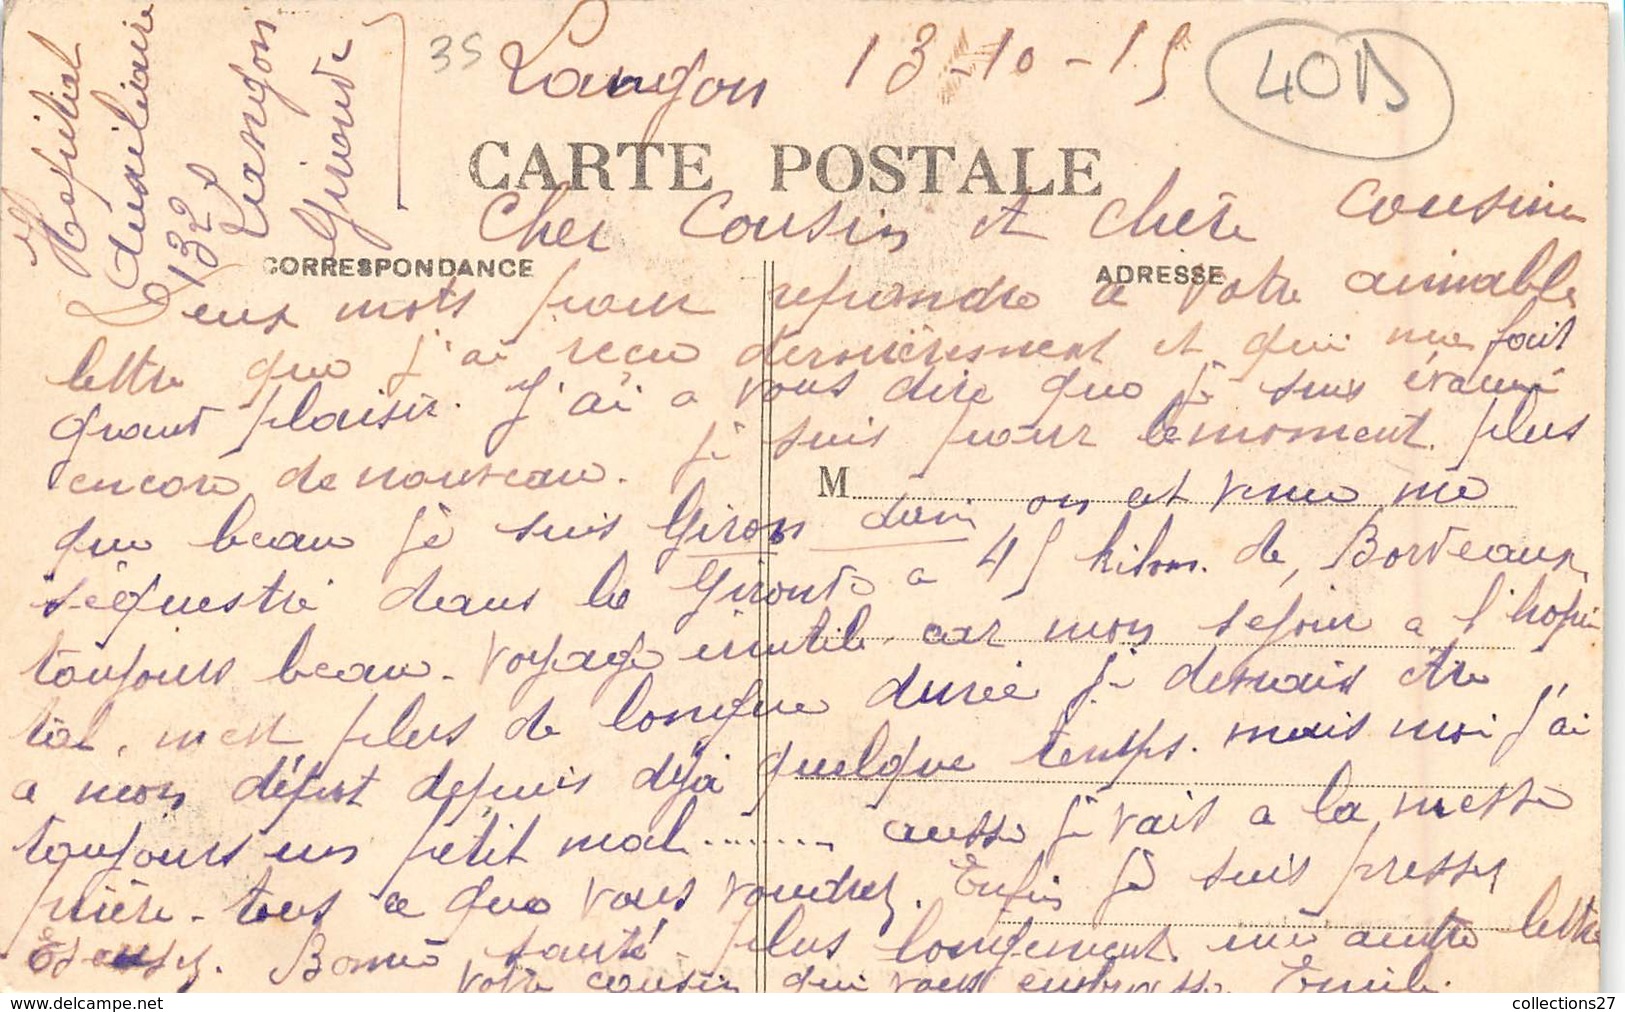 Hopital
Auxiliaire
132
Langon
Gironde
35
Langon 13-10-15
40D
CARTE POSTALE
Cher Cousin et chère cousine
CORRESPONDANCE
ADRESSE
Deux mots pour repondre a votre aimable
lettre que j'ai recu dernièrement et qui me fait
grand plaisir. J'ai a vous dire que je suis évacué
encore de nouveau. Je suis pour le moment plus
M
que beau je suis Girondain on est venu me
séquestré dans la Gironde a 45 kilom. de Bordeaux
toujours beau. Voyage inutile car mon sejour a l'hopi
tal, n'est plus de longue durée je devrais etre
a mon dépot depuis déjà quelque temps. mais moi j'ai
toujours un petit mal........ aussi je vais a la messe
prière. tous ce que vous voudrez. Enfin je suis presser
Bonne santé. plus longuement une autre lettre
votre cousin qui vous embrasse Emile.
collections27